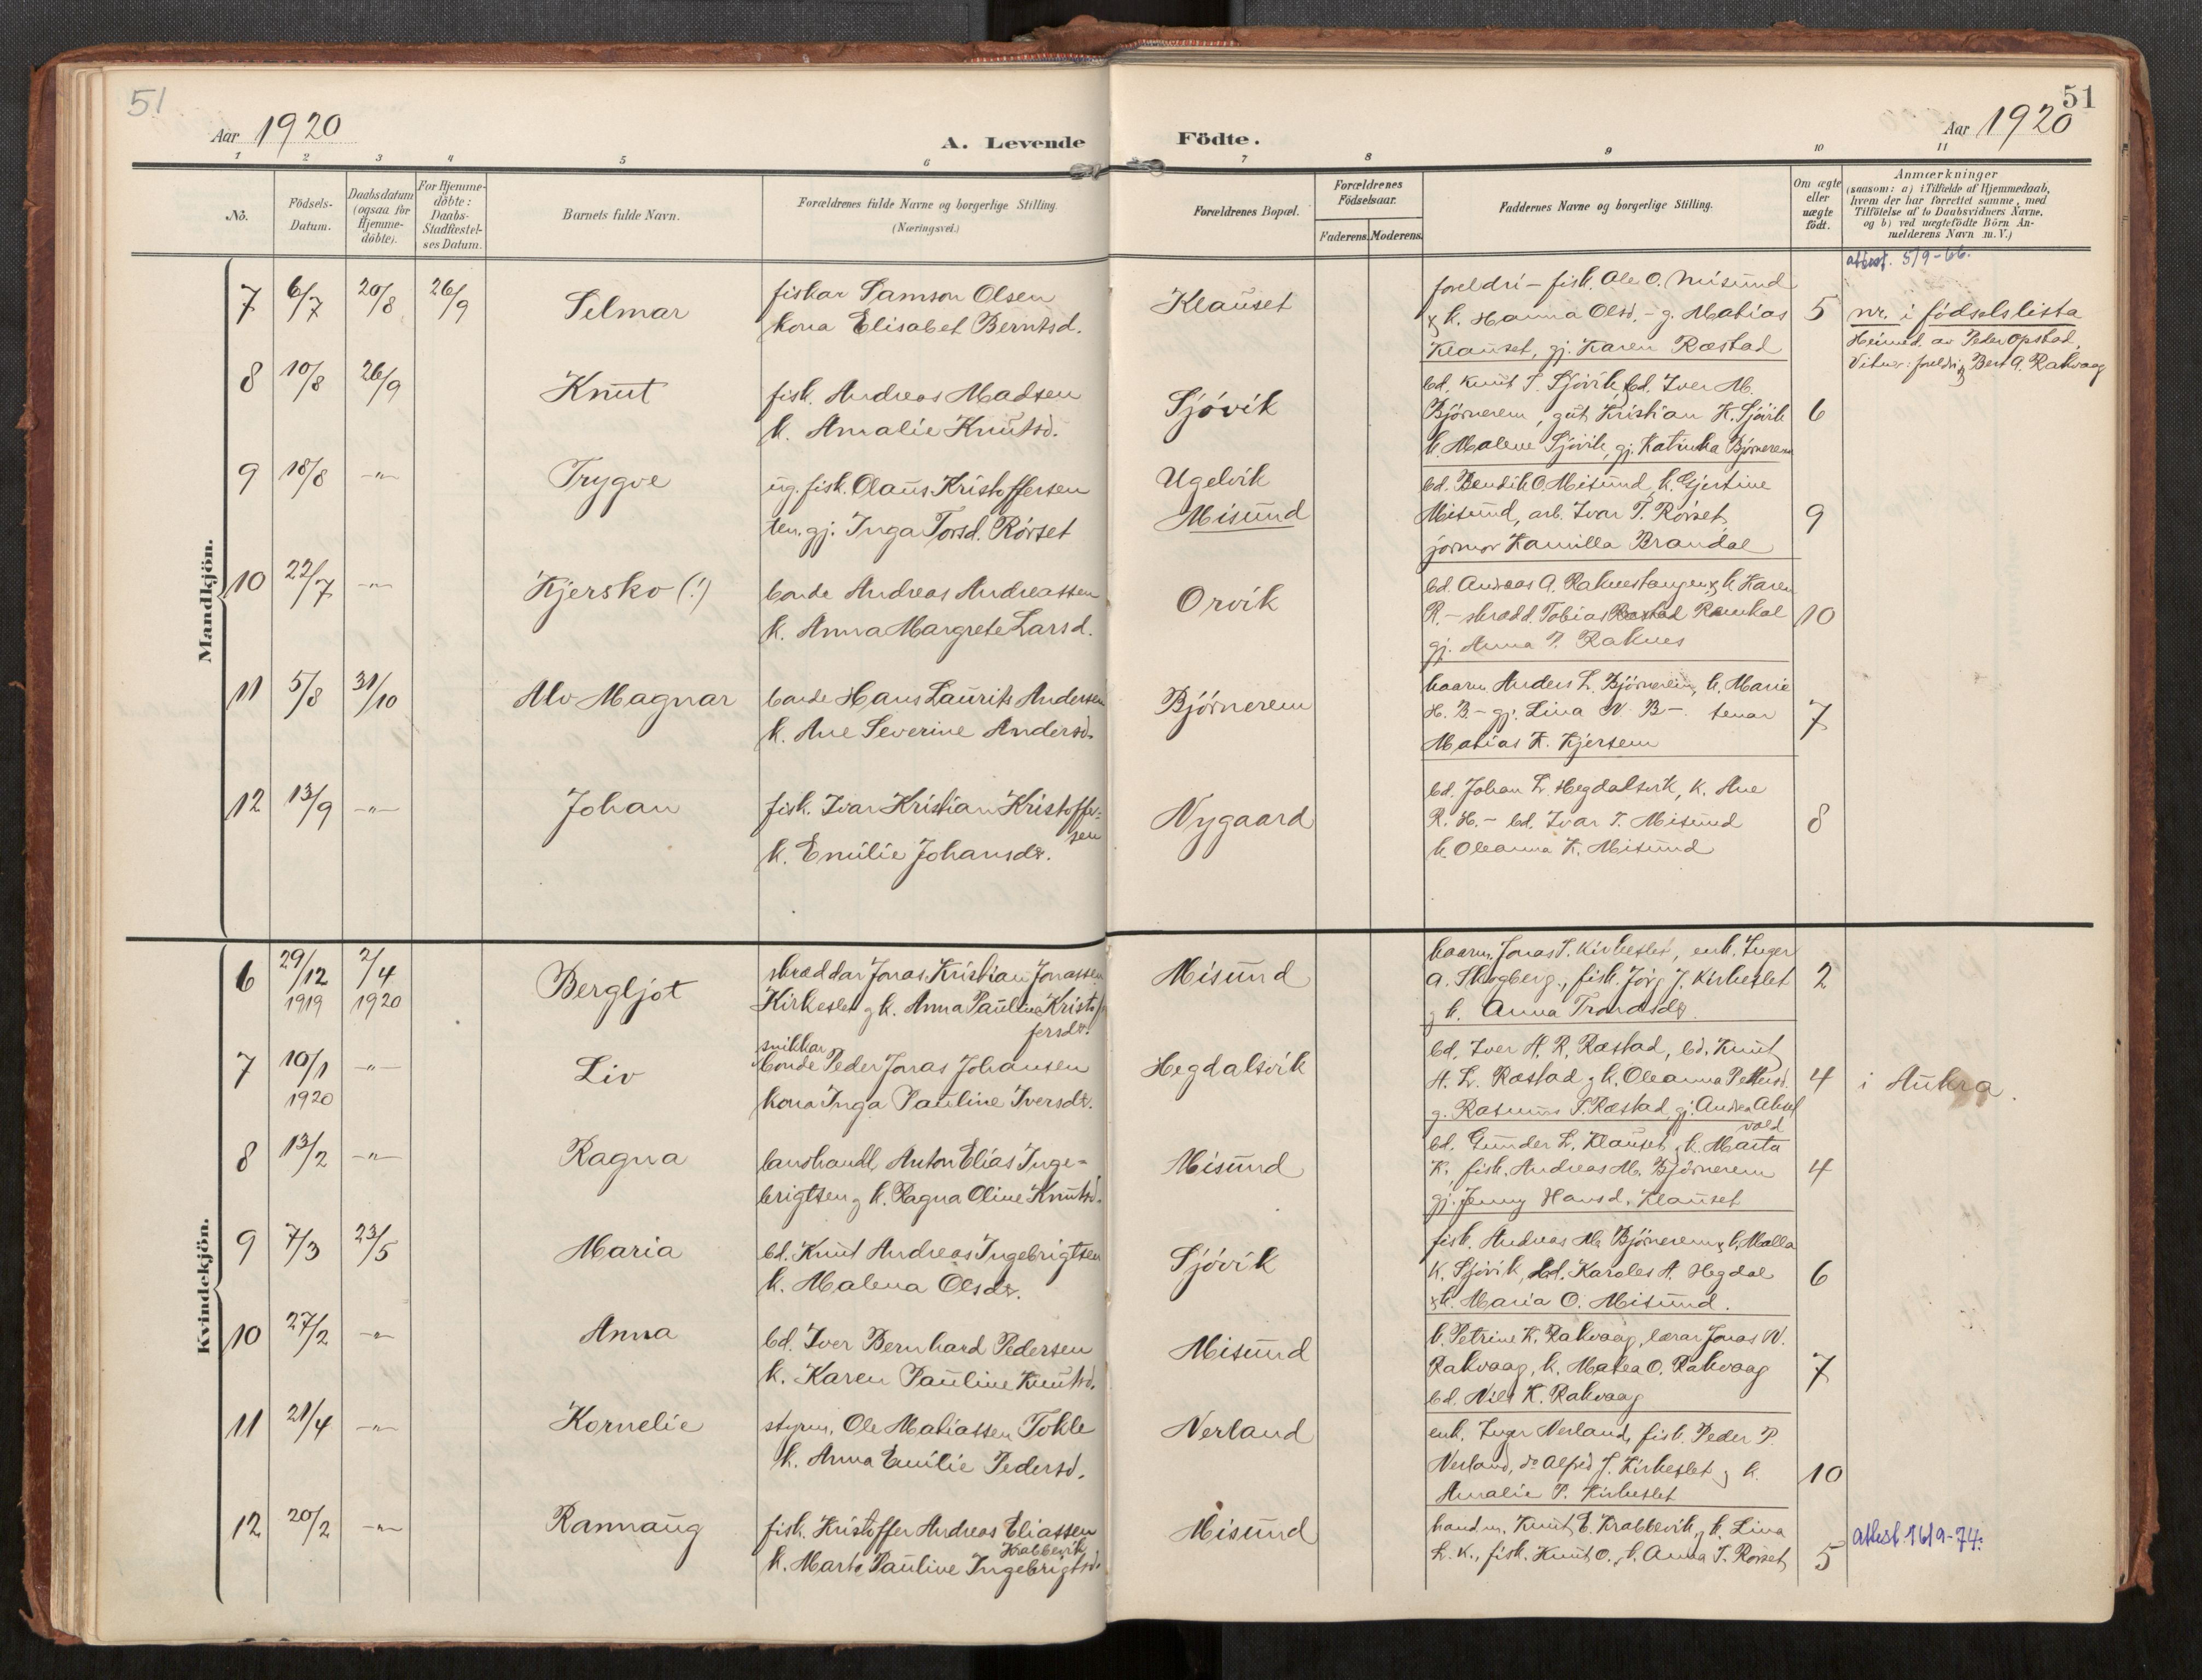 51
51
Aar 1920
A. Levende
Födte.
Aar 1920
1 2 3 4 5 6 7 8 9 10 11
No.
Födsels-Datum.
Daabsdatum (ogsaa for Hjemme-döbte).
For Hjemme-döbte: Daabs-Stadfæstel-ses Datum.
Barnets fulde Navn.
Forældrenes fulde Navne og borgerlige Stilling.
(Næringsvei.)
Forældrenes Bopæl.
Forældrenes Födselsaar.
Faderens. Moderens.
Faddernes Navne og borgerlige Stilling.
Om ægte eller uægte födt.
Anmærkninger
(saasom: a) i Tilfælde af Hjemmedaab,
hvem der har forrettet samme, med
Tilföielse af to Daabsvidners Navne,
og b) ved uægtefödte Börn An-
melderens Navn m. V.)
Mandkjön.
attest. 5/9-66.
7 6/7 20/8 26/9 Selmar
fiskar Samson Olsen
kona Elisabet Berntsd.
Klauset
foreldri - fisk. Ole O. Misund
& k. Hanna Olsd. - g. Matias
Klauset, gj. Karen Ræstad
5
nr. i fødselslista
Heimed. av Peder Opstad,
Vitner: foreldri & Bert A. Rakvaag
8 10/8 26/9 Knut
fisk. Andreas Madsen
k. Amalie Knutsd.
Sjövik
bd. Knut S. Sjövik, bd. Iver M.
Björnerem, gut Kristian K. Sjövik
k. Malene Sjövik, gj. Katinka Björnerem
6
9 18/8 -"- Trygve
ug. fisk. Olaus Kristoffersen
ten. gj. Inga Torsd. Rörset
Ugelvik
Misund
bd. Bendik O. Misund, k. Gjertine
Misund, arb. Ivar T. Rörset,
jormor Kamilla Brandal
9
10 22/7 -"- Kjersko (!)
bonde Andreas Andreassen
k. Anna Margrete Larsd.
Orvik
bd. Andreas A. Raknestangen, & k. Karen
R. - skradd. Tobias Ræstad
gj. Anna P. Raknes
10
11 5/8 31/10 Alv Magnar
bonde Hans Laurits Andersen
k. Ane Severine Andersd.
Björnerem
kaarm. Anders L. Björnerem, k. Marie
H. B - gj. Lina N. B -. tenar
Matias K. Kjersem
7
12 13/9 -"- Johan
fisk. Ivar Kristian Kristoffer=
sen
k. Emilie Johansdr.
Nygaard
bd. Johan L. Hegdalsvik, k. Ane
R. H. - bd. Ivar T. Misund
k. Oleanna K. Misund
8
Kvindekjön.
6 29/12 1919 2/4 1920 Bergljot
skræddar Jonas Kristian Jonassen
Kirkeslet & k. Anna Pauline Kristof
fersdr.
Misund
kaarm. Jonas T. Kirkeslet, enk. Inger
A. Skogberg., fisk. Jörg J. Kirkeslet
& k. Anna Trondsdr.
2
7 10/1 1920 -"- Liv
snikkar
bonde Peder Jonas Johansen
kona Inga Pauline Iversdr.
Hegdalsvik
bd. Iver H. R. Ræstad, bd. Knut
H. L. Ræstad & k. Oleanna Pettersd.
g. Rasmus S. Ræstad, gj. Andrea Aksel
vold
4
i Aukra.
8 13/2 -"- Ragna
landhandl. Anton Elias Inge=
brigtsen & k. Ragna Oline Knutsd.
Misund
bd. Gunder L. Klauset, & k. Marta
K., fisk. Andreas M. Björnerem
gj. Jenny Hansd. Klauset
4
9 7/3 23/5 Maria
bd. Knut Andreas Ingebrigtsen
k. Malena Olsdr.
Sjövik
fisk. Andreas M. Björnerem & k. Malla
K. Sjövik, bd. Karoles A. Hegdal
& k. Maria O. Misund.
6
10 27/2 -"- Anna
bd. Iver Bernhard Pedersen
k. Karen Pauline Knutsd.
Misund
k. Petrine K. Rakvaag, lærar Jonas N.
Rakvaag, k. Matea O. Rakvaag
bd. Nils K. Rakvaag
7
11 21/4 -"- Kornelie
styrm. Ole Matiassen Tokle
k. Anna Emilie Pedersd.
Nerland
enk. Inger Nerland, fisk. Peder P.
Nerland, do Alfred J. Kirkeslet & k.
Amalie P. Kirkeslet
10
12 20/2 -"- Rannaug
fisk. Kristoffer Andreas Eliassen
Krabbevik,
k. Marta Pauline Ingebrigtsd.
Misund
handm. Knut E. Krabbevik, & k. Lina
L. K., fisk. Knut O., k. Anna T. Rörset
5
attest 16/9-74.